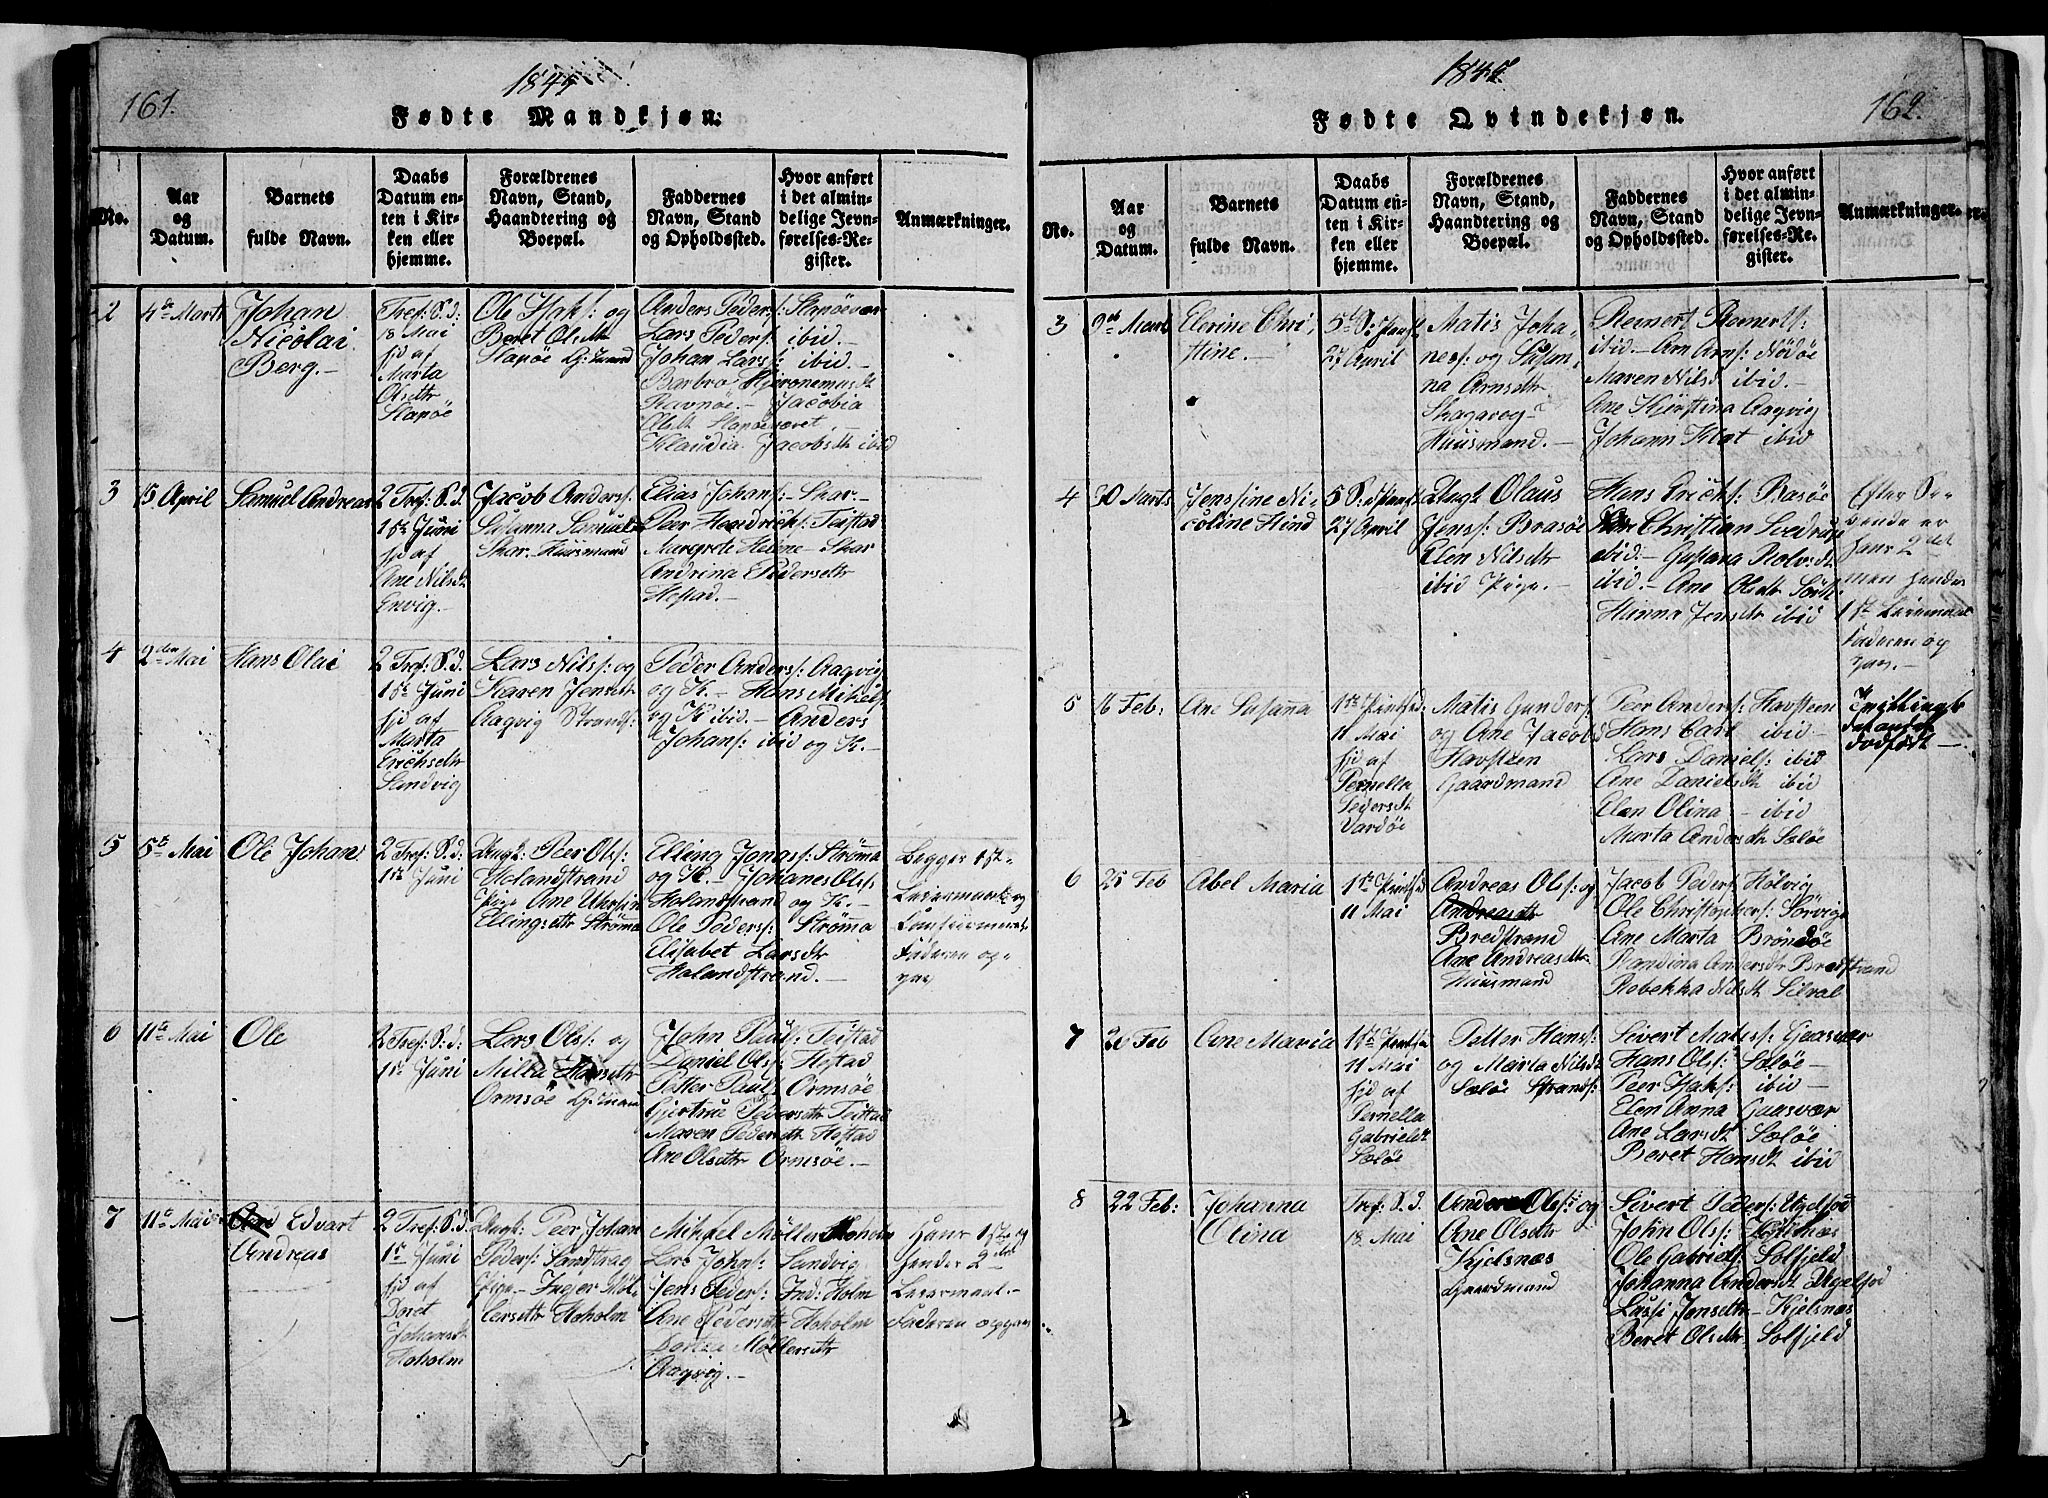 161.
1845
Fødte Mandkjøn.
No.
Aar
og
Datum.
Barnets
fulde Navn.
Daabs
Datum en-
ten i Kir-
ken eller
hjemme.
Forældrenes
Navn, Stand,
Haandtering og
Boepæl.
Faddernes
Navn, Stand
og Opholdssted.
Hvor anført
i det almin-
delige Jevn-
førelses-Re-
gister.
Anmærkninger.
2
4de Marts
Johan
Nicolai
Berg.-
Tref: S. d:
18 Mai
hjd af
Marta
Olsdtr
Slapöe
Ole Isaks: og
Beret Olsdtr
Slapöe Gj:mand
Anders Peders: Slapöevær
Lars Peders: ibid.-
Johan Lars: ibid.-
Barbro Hjeronemusdt
Ravnöe.- Jacobia
Olsdt Slapöeværet.-
Klaudia Jacobsdtr ibid
3
15 April
Samuel Andreas
2 Tref: S. d.
1ste Juni
hjd af
Ane Nilsdt
Envig.-
Jacob Anders:
Susanna Samuelsd
Skar- Huusmand
Elias Johans:- Skar:
Peer Hendrichs: Teistad
Margrete Helene- Skar
Andrina Pedersdtr
Hestad.-
4
2den Mai
Hans Olai
2 Tref: S. d.
1ste Juni
hjd af
Marta
Erichsdtr
Sandvig
Lars Nils: og
Karen Jensdtr
Aagvig Strands:
Peder Anders: Aagvig
og K.- Hans Mikals:
og K ibid.- Anders
Johans: ibid og K.-
5
5te Mai
Ole Johan
2 Tref: S. d:
1ste Juni
Ungk: Peer Ols:
Holandstrand
Pige Ane
Ellingsdtr Strömma
Elling Jonas: Strömma
og K.- Johanes Ols:
Holandstrand og K.-
Ole Peders: Strömma
Elisabet Larsdtr
Holandstrand.-
Begges 1ste
Leiermaal og
Faderen op-
gav
6
11te Mai
Ole
2 Tref: S. d:
1ste Juni
Lars Ols: og
Milla Hansdtr
Ormsöe Gj:mand
John Pauls: Teistad
Daniel Ols: Hestad
Petter Pauls: Ormsöe
Gjertrue Pedersdtr Teistad
Maren Pedersdtr Hestad
Ane Olsdtr Ormsöe.-
7
11te Mai
Edvart
Andreas
2 Tref: S. d.
1ste Juni
hjd af
Doret
Johansdt
Hoholm
Ungk: Peer Johan
Peders: Sandstrag
Pige- Inger Möl-
lersdtr Hoholm
Mikkel Möller
Lars Johns: Sandvig
Jens Peders: Ind: Holm
Ane Pedersdtr Hoholm
Dortea Möllersdtr
Aagvig.-
Hans 1ste og
hendes 2det
Leiermaal.-
Faderen opgiven
162.
1845
Fødte Qvindekjøn.
No.
Aar
og
Datum.
Barnets
fulde Navn.
Daabs
Datum en-
ten i Kir-
ken eller
hjemme.
Forældrenes
Navn, Stand,
Haandtering og
Boepæl.
Faddernes
Navn, Stand
og Opholdssted.
Hvor anført
i det almin-
delige Jevn-
førelses-Re-
gister.
Anmærkninger.
3
9de Marts
Elerine Chri-
stine.-
27 April
Matis Joha-
nes: og Susan-
na Arnsdtr
Huusmand.-
Reinert Reinerts:
ibid.- Arn Arns: Nödöe
Maren Nilsdt ibid.-
Ane Kjerstina Aagvig
Johann Klæt ibid
4
30 Marts
Jenssine Ni-
coline Hind
27 April
Ungk: Olaus
Jens: Brasöe
Elen Nilsdtr
ibid Pige.-
Hans Erichs: Basöe
Christian
ibid.- Gustava Rolvsdt
ibid.- Ane Olsdtr
Hanna Jensdtr ibid
Efter
hans 2det
men hendes
1ste Leiermaal
Faderen og
5
16 Feb:
Ane Susanna
11 Mai
hjd af
Pernella
Pedersdt
Vardöe
Matis Gunders:
og Ane Jacobsd
Havsteen
Gaardmand
Peer Anders: Havsteen
Hans Carl ibid-
Lars Daniels: ibid
Ane Danielsdt ibid
Elen Olina - ibid
Marta Andersdtr Solöe
Tvillingb
det anset
dödfödt-
6
25 Feb
Abel Maria
11 Mai
Andreas Ols: og
Andreasdtr
Bredstrand
Ane Andreasdtr
Huusmand
Jacob Peders: Holvig
Ole Christophers: Sörvige
Ane Marta Bröndöe
Randina Andersdtr Bredstrand
Robekka Nilsdt Silval
7
26 Feb
Ane Maria
11 Mai
hjd af
Pernella
Gabrielsdt
Solöe
Petter Hans:
og Marta Nilsdt
Solöe Strands:
Sivert Mates: Gaasvær
Hans Ols: Solöe-
Peer Isaks: ibid-
Elen Anna Gaasvær
Ane Larsdt Solöe
Beret Hansdt ibid
8
22 Feb:
Johanna
Olina
Tref: S. d.
18 Mai
Anders Ols: og
Ane Olsdtr
Kjelsnæs
Gaardmand
Sivert Peders: Ugelfod
John Ols: Kjelsnæs
Ole Gabriels: Solfjeld
Johanna Andersdt Ugelfod
Lassi Jensdtr- Kjelsnæs
Beret Olsdtr- Solfjeld